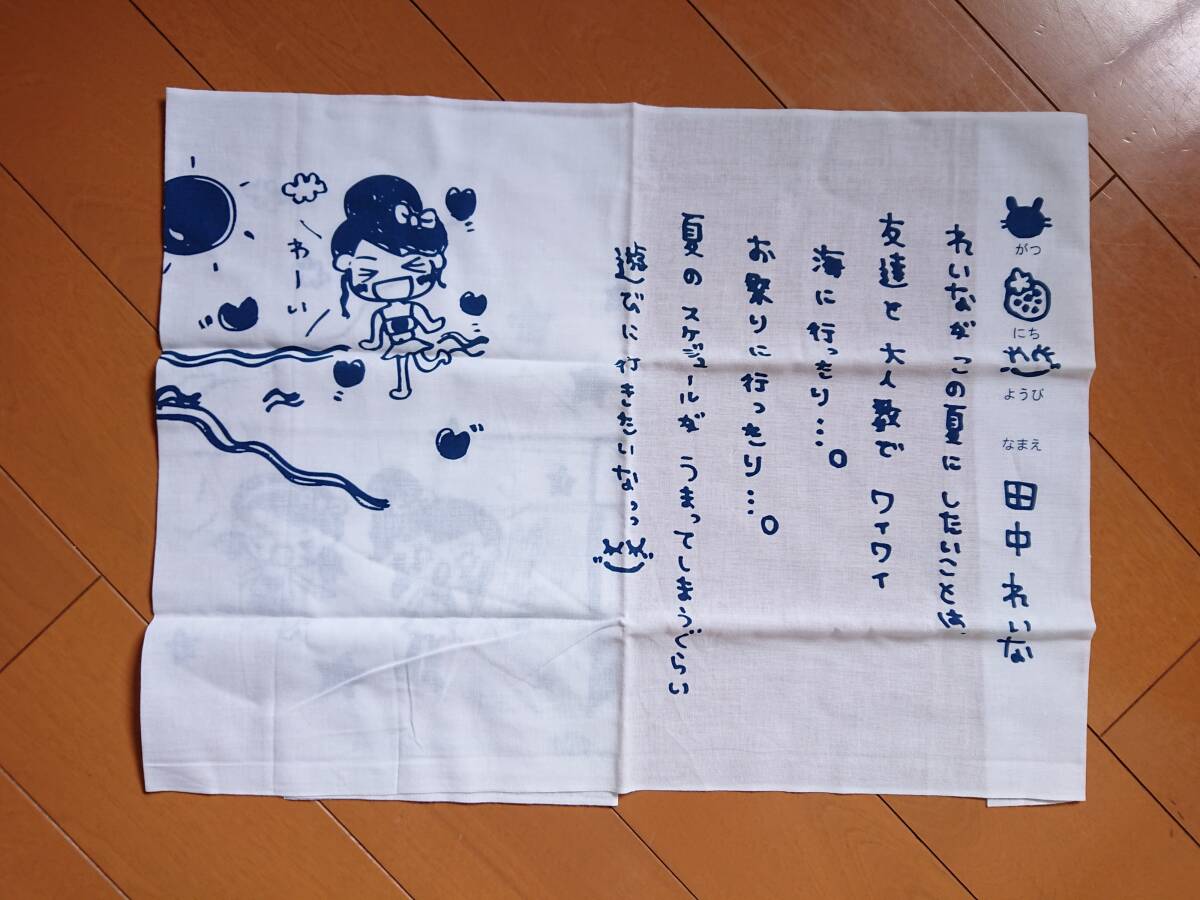 がつ
にち
ようび
なまえ
田中れいな
れいながこの夏にしたいことは、
友達と大人数でワイワイ
海に行ったり…。
お祭りに行ったり…。
夏のスケジュールがうまってしまうぐらい
遊びに行きたいなっっ
わーい